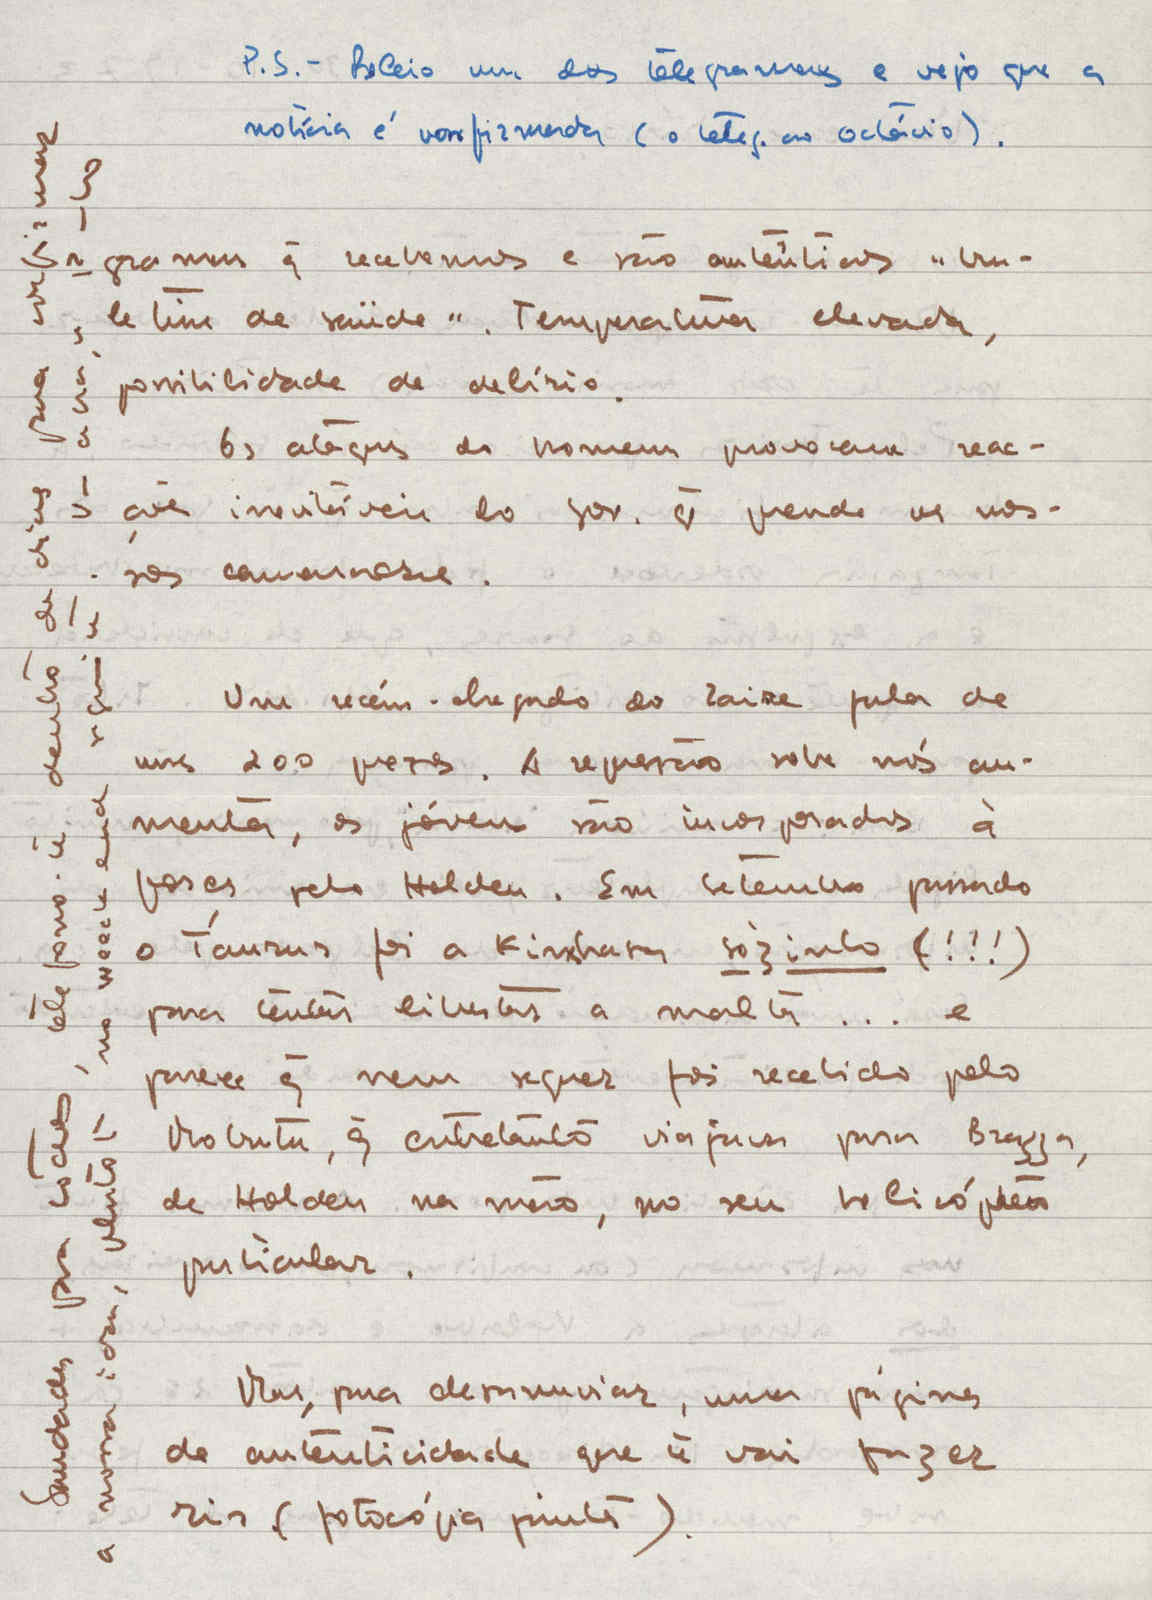 P.S.- Releio um dos telegramas e vejo que a
notícia é confirmada (o teleg. ao Octávio).
gramas q̄ recebemos e são autênticos "bo-
letim de saúde". Temperatura elevada,
possibilidade de delírio.
Os ataques do homem provocam reac-
ções inevitáveis do gov. q̄ prende os nos-
sos camaradas.
Um recém-chegado do Zaire fala de
uns 200 presos. A repressão sobre nós au-
menta, os jóvens são incorporados à
força pelo Holden. Em setembro passado
o Taurus foi a Kinshasa sòzinho (!!!)
para tentar libertar a malta ... e
parece q̄ nem sequer foi recebido pelo
Mobutu, q̄ entretanto viajava para Brazza,
de Holden na mão, no seu helicóptero
particular.
Mas, para desanuviar, uma página
de autenticidade que te vai fazer
rir. (fotocópia junta).
Saudades para todos, telefono-te dentro de dias para confirmar
a nossa ida, talvez no week end seguinte. Ciao,